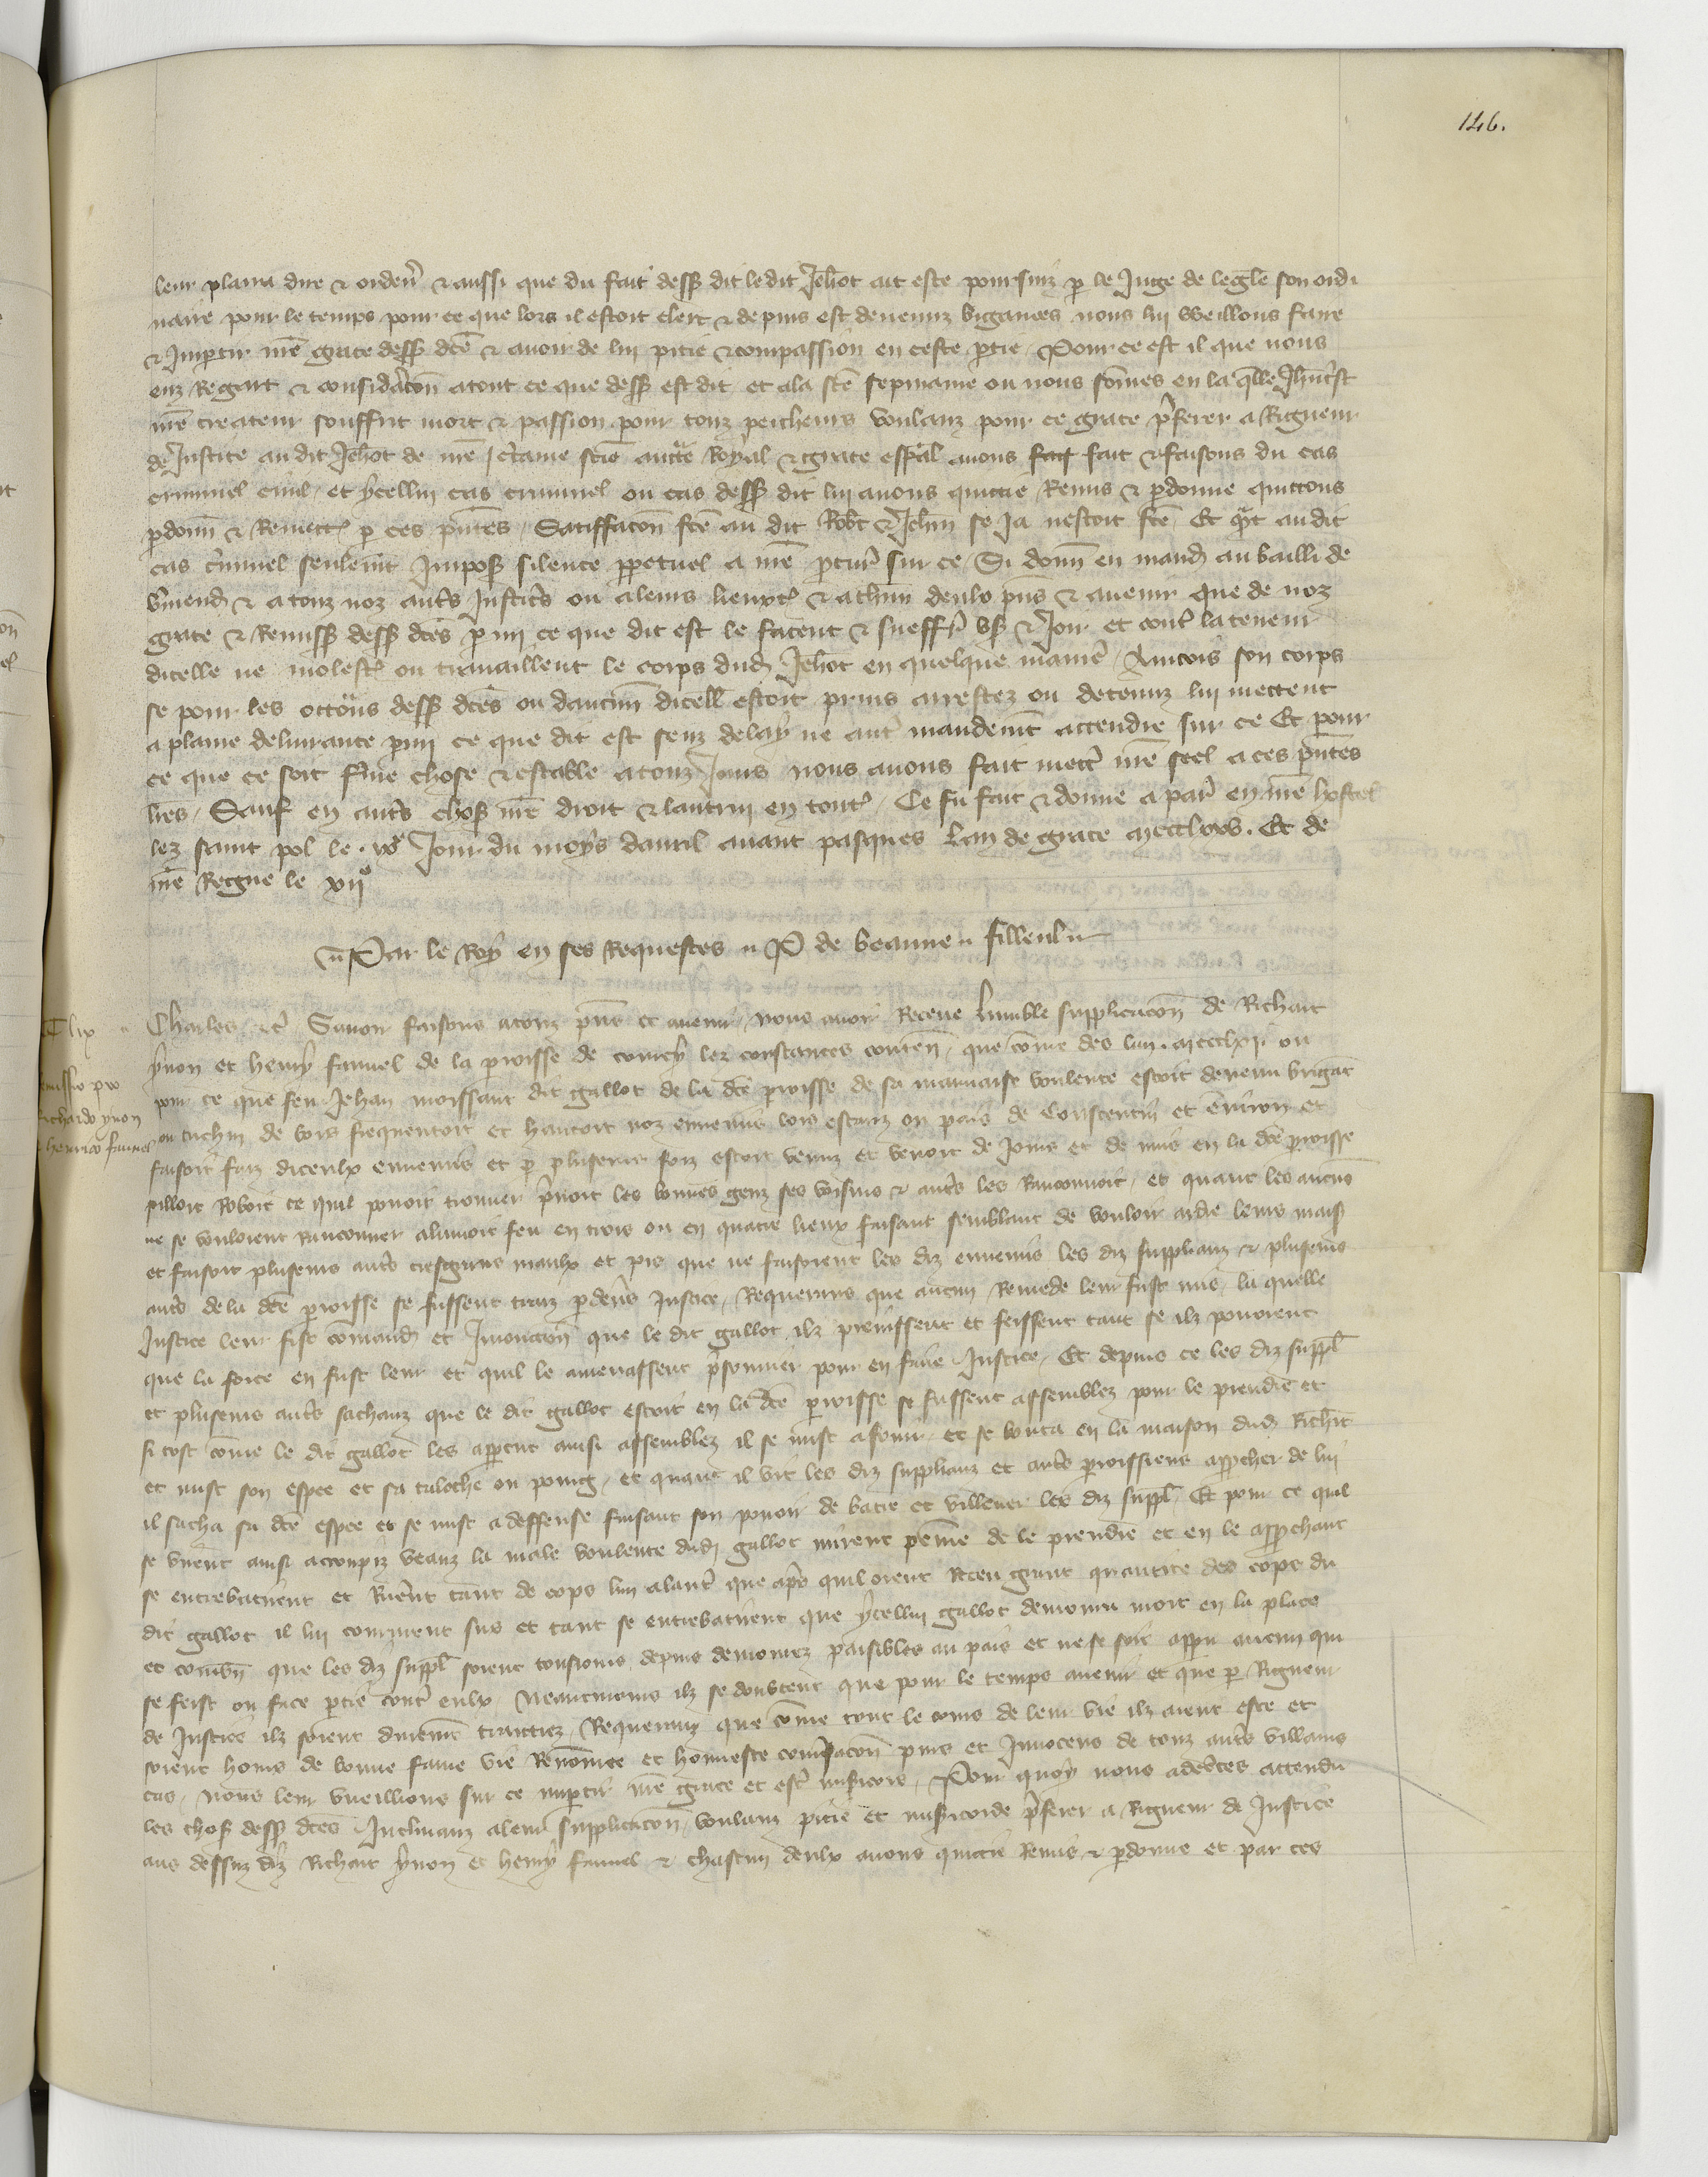 146.
leur plaira dire & orden̄ & aussi que du fait dess dit ledit Jeh̄ot ait este poursuiz p le Juge de legl̄e son ordi
naire pour le temps pour ce que lors il estoit clerc & depuis est devenuz bigames nous lui weillons faire
& Impartir nr̄e grace dess dc̄e & avoir de lui pitie & compassion en ceste p̄tie Pour ce est il que nous
euz Regart & consideracōn a tout ce que dess est dit et a la sc̄e sepmaine ou nous som̄es en la q̄lle Jhūcrist
nr̄e createur souffrit mort & passion pour touz pecheurs voulanz pour ce grace p̄ferer a Rigueur
de Justice au dit Jeh̄ot de nr̄e c̄taine scīe auctē Royal & grace esp̄al avons fait & faisons du cas
criminel civil et ycellui cas criminel ou cas dess dit lui avons quictie Remis & p̄donne quictons
p̄donn̄ & Remett p ces p̄ntes Satiffacōn fc̄e au dit Rob̄t & Jeh̄n se Ja nestoit fc̄e Et q̄nt au dit
cas c̄iminel seulem̄t Impos silence p̄petuel a nr̄e p̄cur̄ sur ce Si donn̄ en mand au bailli de
v̄mend & a touz noz aut̄s Justic̄s ou a leurs lieux & a ch̄un deulx p̄ns & avenir que de noz
grace & Remiss dess dc̄es p̄mi ce que dit est le facent & sueffr̄ us & Joir et cont̄ la teneur
dicelle ne molest ou travaillent le corps dud Jeh̄ot en quelque manier̄ Aincois son corps
se pour les occ̄ons dess dc̄es ou daucun̄ dicell̄ estoit prins arrestez ou detenuz lui mettent
a plaine delivrance p̄mi ce que dit est senz delay ne aut̄ mandem̄t attendre sur ce Et pour
ce que ce soit ferme chose & estable a touz Jours nous avons fait mett̄ nr̄e seel a ces p̄ntes
l̄res Sauf en aut̄s chos nr̄e droit & lautrui en tout Ce fu fait & donne a par̄ en nr̄e hostel
lez saint pol le Jour du moys davril avant pasques Lan de grace mccclxxv. Et de
nr̄e Regne le xii
Par le Roy en ses Requestes P de beaune filleul
Charles &c̄ Savoir faisons a touz p̄ns et avenir nous avoir Receue lumble supplicacōn de Richart
ynon et henry fauvel de la p̄roisse de courcy lez constances conten̄ que com̄e des lan mccclxii ou
pour ce que feu Jehan moissant dit gallot de la dc̄e p̄roisse de sa mauvaise voulente estoit devenu brigāt
ou tuchin de bois frequentoit et hantoit noz ennemis lors estanz ou pais de Constentin et environ et
faisoit faiz diceulx ennemis et p pluseurs foiz estoit venuz et venoit de Jours et de nuis en la dc̄e p̄roisse
pilloit Roboit ce quil pouoit trouver p̄noit les bonnes genz ses voisins & aut̄s les Ranconnoit et quant les aucūs
ne se vouloient Ranconner alumoit feu en trois ou en quatre lieux faisant semblant de vouloir ardre leurs mais
et faisoit pluseurs aut̄s tresgrans maulx et pis que ne faisoient les diz ennemis les diz supplianz & pluseurs
aut̄s de la dc̄e p̄roisse se fussent traiz p̄dev̄s Justice Requerans que aucun Remede leur fust mis la quelle
Justice leur fist com̄and et Jnioncion̄ que le dit gallot ilz preinssent et feissent tant se ilz pouoient
que la force en fust leur et quil le amenassent p̄sonnier pour en faire Justice Et depuis ce les diz suppl̄
et pluseurs aut̄s sachanz que le dit gallot estoit en la dc̄e p̄roisse se fussent assemblez pour le prendre et
si tost com̄e le dit gallot les ap̄cut ainsi assemblez il se mist a fouir et se bouta en la maison dud Rich̄t
et mist son espee et sa taloche ou poing et quant il vit les diz supplianz et aut̄s p̄roissiens ap̄cher de lui
il sacha sa dc̄e espee et se mist a deffense faisant son pouoir de batre et villener les diz suppl̄ Et pour ce quil
se virent ainsi accoupiz veanz la male voulente dud gallot mirent peinne de le prendre et en le ap̄chant
se entrebatirent et Rūent tant de cops lun a lautr̄ que ap̄s quil orent Receu grant quantite des cops du
dit gallot il lui coururent sus et tant se entrebatirent que ycellui gallot demoura mort en la place
et com̄bn̄ que les diz suppl̄ soient tousiours depuis demourez paisibles au pais et ne se soit appu aucun qui
se feist ou face p̄tie cont̄ eulx Neantmoins ilz se doubtent que pour le temps avenir et que p Rigueur
de Justice ilz soient durem̄t traictiez Requeranz que com̄e tout le cours de leur vie ilz aient este et
soient homs de bonne fame vie Renom̄ee et honneste conv̄sacōn purs et Jnnocens de touz aut̄s villains
cas nous leur vueillions sur ce impartir nr̄e grace et est̄ mis̄icors Pour quoy nous adec̄tes attendu
les chos dess dc̄es Jnclinanz a leur supplicacōn voulanz pitie et mis̄icorde p̄ferer a Rigueur de Justice
aus dessuz diz Richart ynon et henry fauvel & chascun deulx avons quictie Remis & p̄donne et par ces
C lix
Remissio pro
Richardo ynon
& henrico fauvel